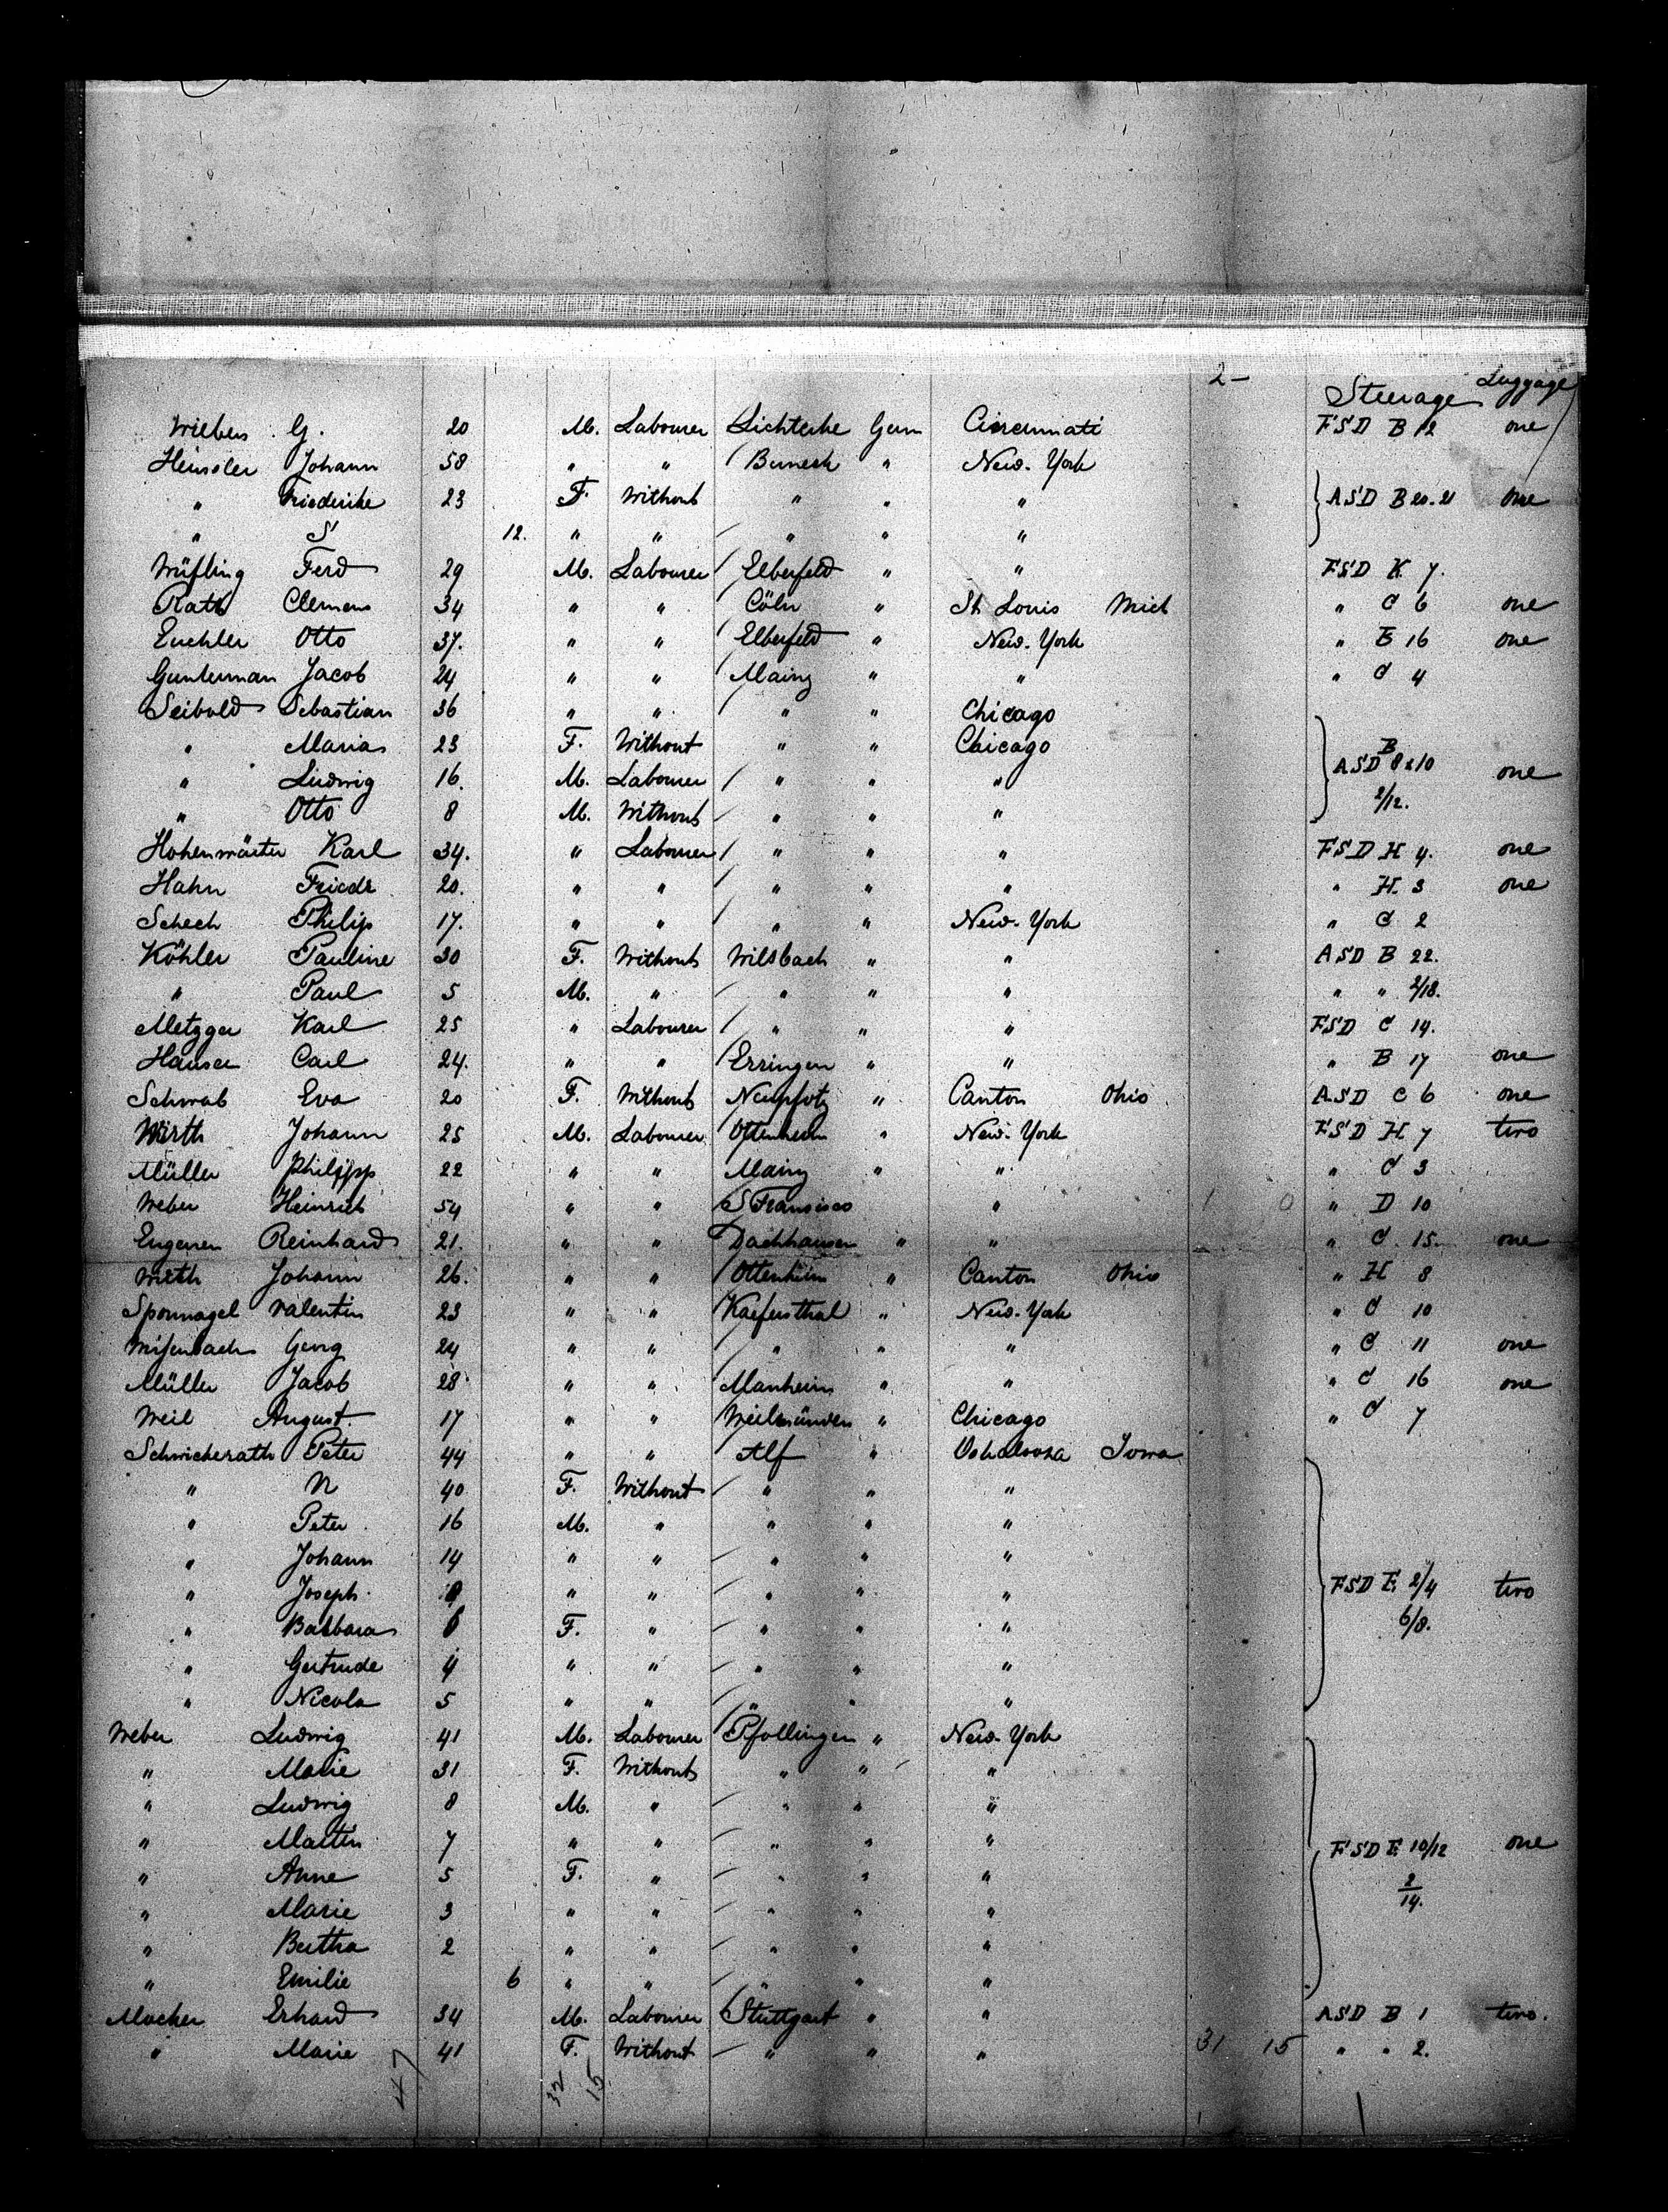 2-
Steerage Luggage
Wilbers G. 20 M. Labourer Lichterhe Germ Cincinnati FSD B 12 one
Heinsler Johann 58 " " Bunesh " New-York
" Friederike 23 F. Without " " " ASD B 20-21 one
" S 12. " " " " "
Wüfling Ferd 29 M. Labourer Elberfeld " " FSD K 7.
Rath Clemens 34 " " Cöln " St Louis Mich " C 6 one
Euchler Otto 37. " " Elberfeld " New-York " E 16 one
Gunterman Jacob 24 " " Mainz " " " C 4
Seibold Sebastian 36 " " " " Chicago
" Maria 23 F. Without " " Chicago B
" Ludwig 16. M. Labourer " " " ASD 8 x 10 one
" Otto 8 M. Without " " " 2/12.
Hohenwärter Karl 34. " Labourer " " " FSD H 4. one
Hahn Friedr 20. " " " " " " H. 3 one
Schech Philip 17. " " " " New-York " C 2
Köhler Pauline 30 F. Without Wilsbach " " ASD B 22.
" Paul 5 M. " " " " " " 2/18.
Metzger Karl 25 " Labourer " " " FSD C 14.
Hauser Carl 24. " " Erringen " " " B 17 one
Schwab Eva 20 F. Without Neupfotz " Canton Ohio ASD C 6 one
Wirth Johann 25 M. Labourer Ottenheim " New-York FSD H 7 two
Müller Philipp 22 " " Mainz " " " C 3
Weber Heinrich 54 " " S Fransisco " 1 0 " D 10
Reinhard 21. " " Dachhausen " " " C 15. one
Wirth Johann 26. " " Ottenheim " Canton Ohio " H 8
Sponnagel Valentin 23 " " Kaefersthal " New-York " C 10
Georg 24 " " " " " " C 11 one
Müller Jacob 28 " " Manheim " " " C 16 one
Weil August. 17 " " Weilmünden " Chicago " C 7
Schwickerath Peter 44 " " Alf " Oskaloosa Iowa
" N 40 F. Without " " "
" Peter 16 M. " " " "
" Johann 14 " " " " "
" Joseph " " " " " FSD E 2/4 two
" Barbara F. " " " " 6/8.
" Gertrude 4 " " " " "
" Nicola 5 " " " " "
Weber Ludwig 41 M. Labourer Pfollingen " New-York
" Marie 31 F. Without " " "
" Ludwig 8 M. " " " "
" Martin 7 " " " " " FSD E 10/12 one
" Anne 5 F. " " " " 2/14.
" Marie 3 " " " " "
" Bertha 2 " " " " "
" Emilie 6 " " " " "
Mocker Erhard 34 M. Labourer Stuttgart " " ASD B 1 two.
" Marie 41 F. Without " " " 31 15 " " 2.
47 32 15